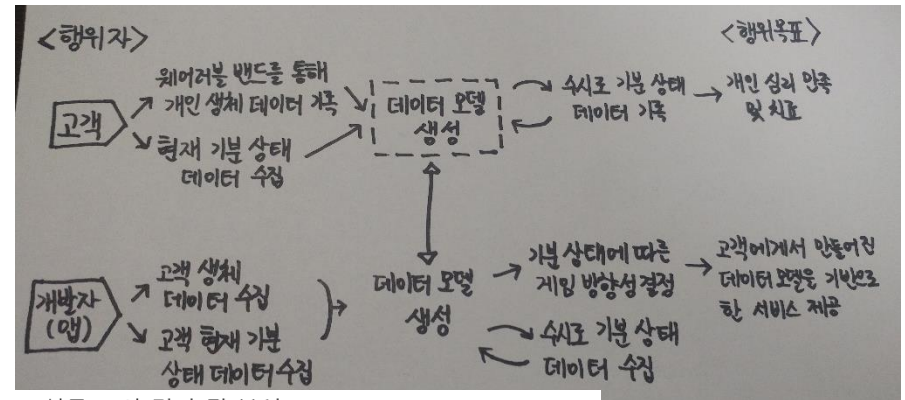 <행위자>
<행위목표>
고객
웨어러블 밴드를 통해
개인 생체 데이터 기록
현재 기분 상태
데이터 수집
데이터 모델
생성
수시로 기분 상태
데이터 기록
개인 심리 만족
및 치료
개발자
(앱)
고객 생체
데이터 수집
고객 현재 기분
상태 데이터 수집
데이터 모델
생성
기분 상태에 따른
게임 방향성 결정
수시로 기분 상태
데이터 수집
고객에게서 만들어진
데이터 모델을 기반으로
한 서비스 제공